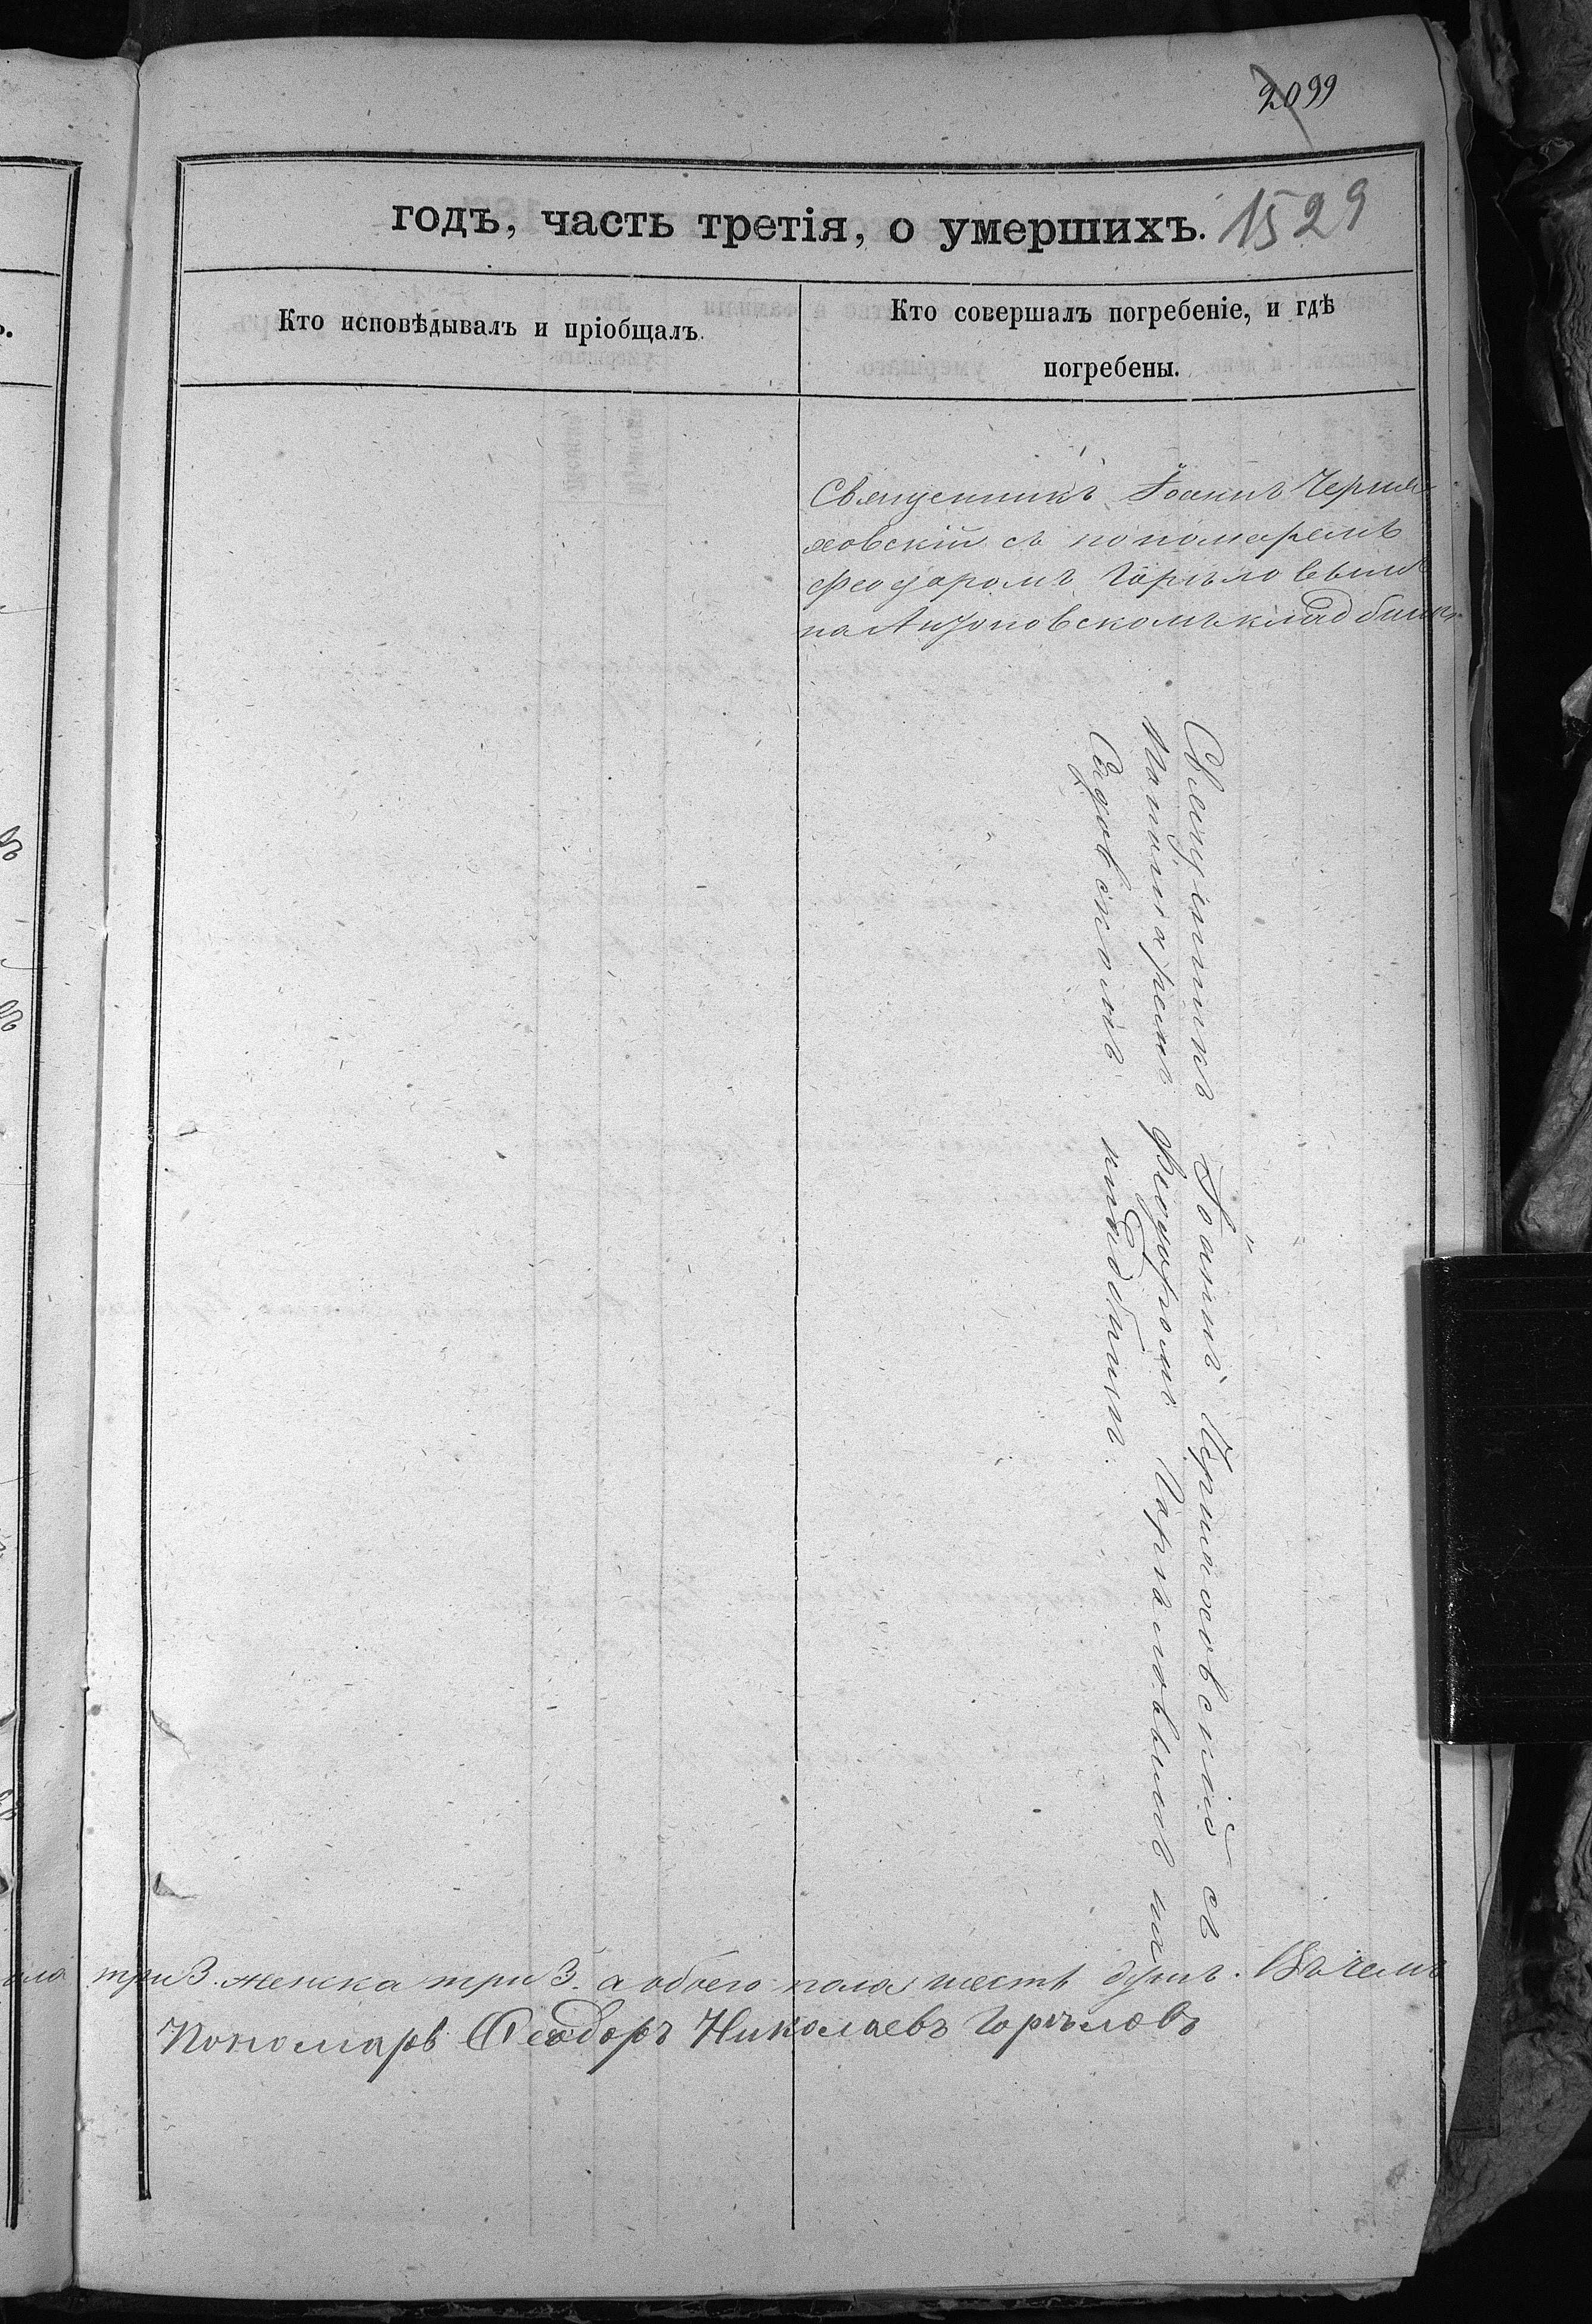 2099
годъ, часть третія, о умершихъ. 1529
Кто исповѣдывалъ и пріобщалъ.
Кто совершалъ погребеніе, и гдѣ
погребены.
Священникъ Іоаннъ Черня
ховскій съ пономаремъ
Феодоромъ Горѣловымъ
на кладбищѣ
Священникъ Іоаннъ Черняховскій съ
Паномаремъ Феодоромъ Горѣловымъ на
Садовскомъ кладбищѣ.
три 3. женска три 3. а обоего пола шесть душъ. Въ чемъ
Пономарь Феодоръ Николаевъ Горѣловъ